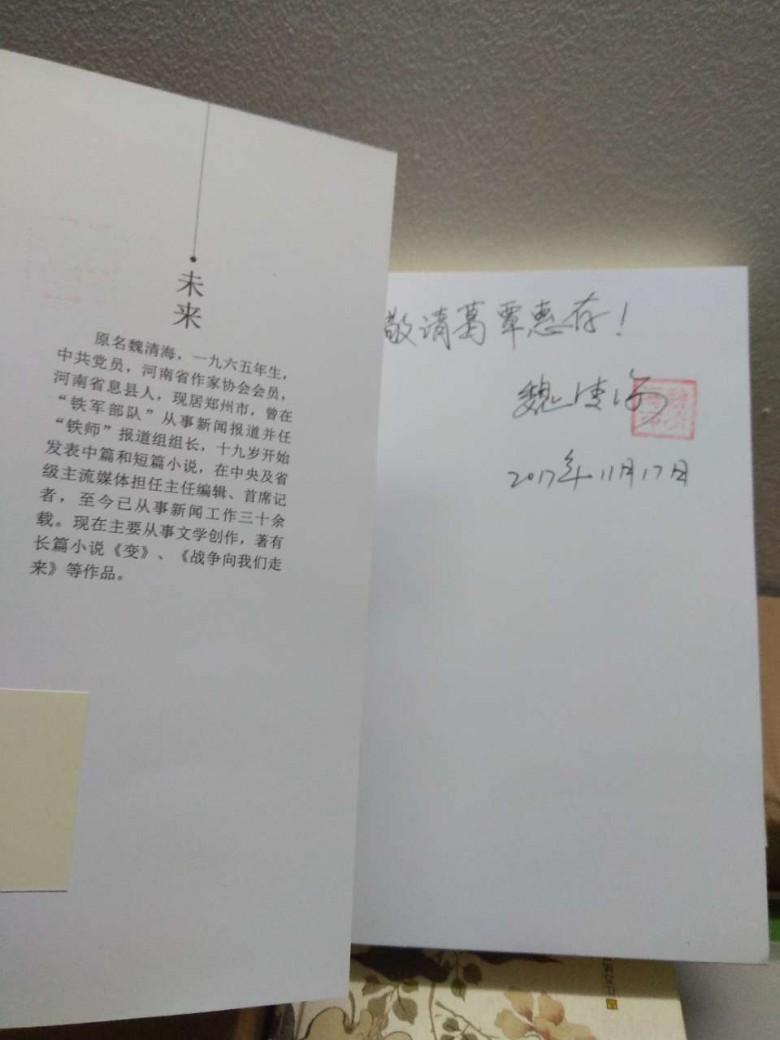 未
来
原名魏清海，一九六五年生，
中共党员，河南省作家协会会员，
河南省息县人，现居郑州市，曾在
“铁军部队”从事新闻报道并任
“铁师”报道组组长，十九岁开始
发表中篇和短篇小说，在中央及省
级主流媒体担任主任编辑、首席记
者，至今已从事新闻工作三十余
载。现在主要从事文学创作，著有
长篇小说《变》、《战争向我们走
来》等作品。
敬请葛覃惠存！
魏清海
2017年11月17日